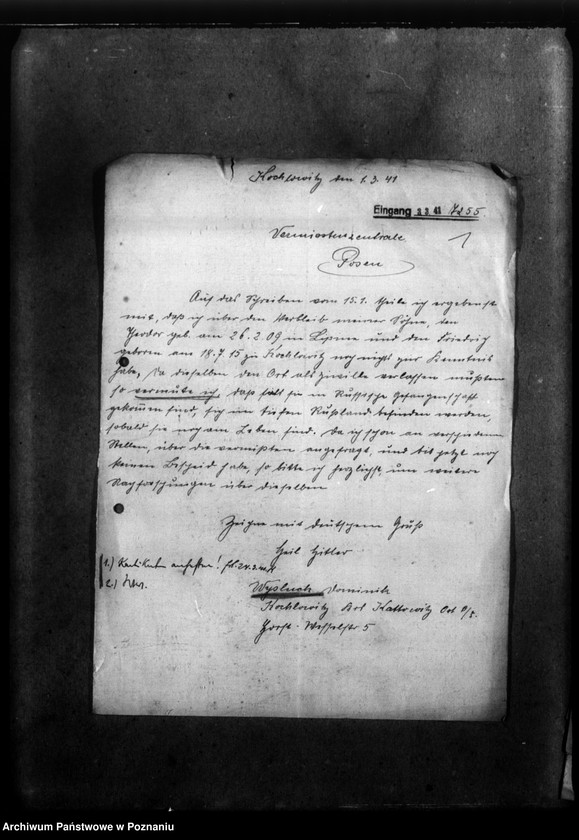 Kochlowitz den 1.3.41
Eingang 3.3.41 7255
Vermisstenzentrale 1
Posen
Auf das Schreiben vom 15.1. theile ich ergebenst
mit, daß ich über den Verbleib meiner Söhne, den
Theodor geb. am 26.2.09 in Lipine und den Friedrich
geboren am 18.7.15 zu Kochlowitz noch nicht zur Kenntnis
habe, da dieselben den Ort als Zivilr verlassen mußten
so vermute ich, daß falls sie in Russische Gefangenschaft
gekommen sind, sich im tiefen Rußland befinden werden,
sobald sie noch am Leben sind. Da ich schon an verschiedenen
Stellen, über die vermißten angefragt, und bis jetzt noch
keinen Bescheid habe, so bitte ich herzlichst, um weitere
Nachforschungen über dieselben
Zeichne mit deutschem Gruß
Heil Hitler
1.) Karteikarten
2.)
Wysluch Dominik
Kochlowitz Kattowitz Ost O/S.
Horst-Wesselstr 5
Archiwum Państwowe w Poznaniu